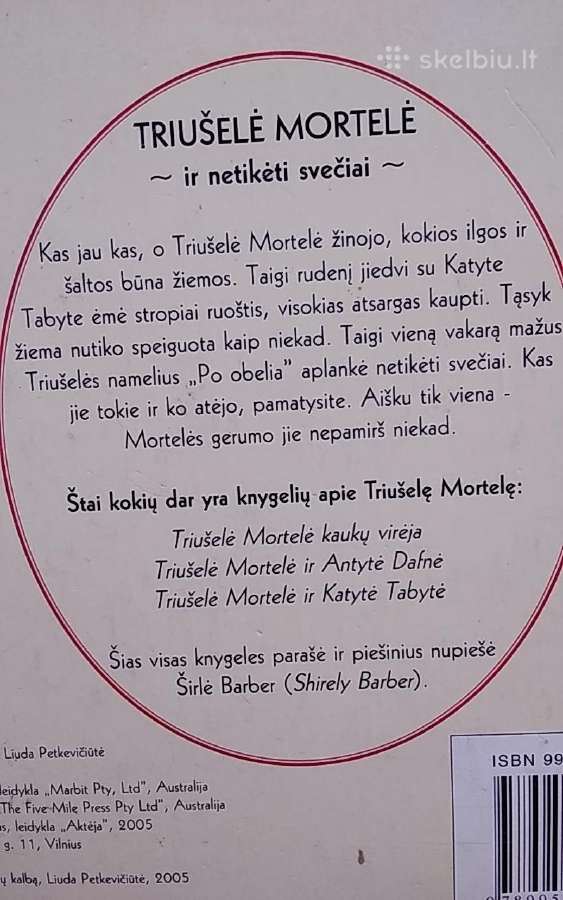 skelbiu.lt
TRIUŠELĖ MORTELĖ
~ ir netikėti svečiai ~
Kas jau kas, o Triušelė Mortelė žinojo, kokios ilgos ir
šaltos būna žiemos. Taigi rudenį jiedvi su Katyte
Tabyte ėmė stropiai ruoštis, visokias atsargas kaupti. Tąsyk
žiema nutiko speiguota kaip niekad. Taigi vieną vakarą mažus
Triušelės namelius „Po obelia" aplankė netikėti svečiai. Kas
jie tokie ir ko atėjo, pamatysite. Aišku tik viena -
Mortelės gerumo jie nepamirš niekad.
Štai kokių dar yra knygelių apie Triušelę Mortelę:
Triušelė Mortelė kaukų virėja
Triušelė Mortelė ir Antytė Dafnė
Triušelė Mortelė ir Katytė Tabytė
Šias visas knygeles parašė ir piešinius nupiešė
Širlė Barber (Shirely Barber).
Liuda Petkevičiūtė
leidykla „Marbit Pty, Ltd", Australija
The Five Mile Press Pty Ltd", Australija
leidykla „Aktėja", 2005
g. 11, Vilnius
kalbą, Liuda Petkevičiūtė, 2005
ISBN 99